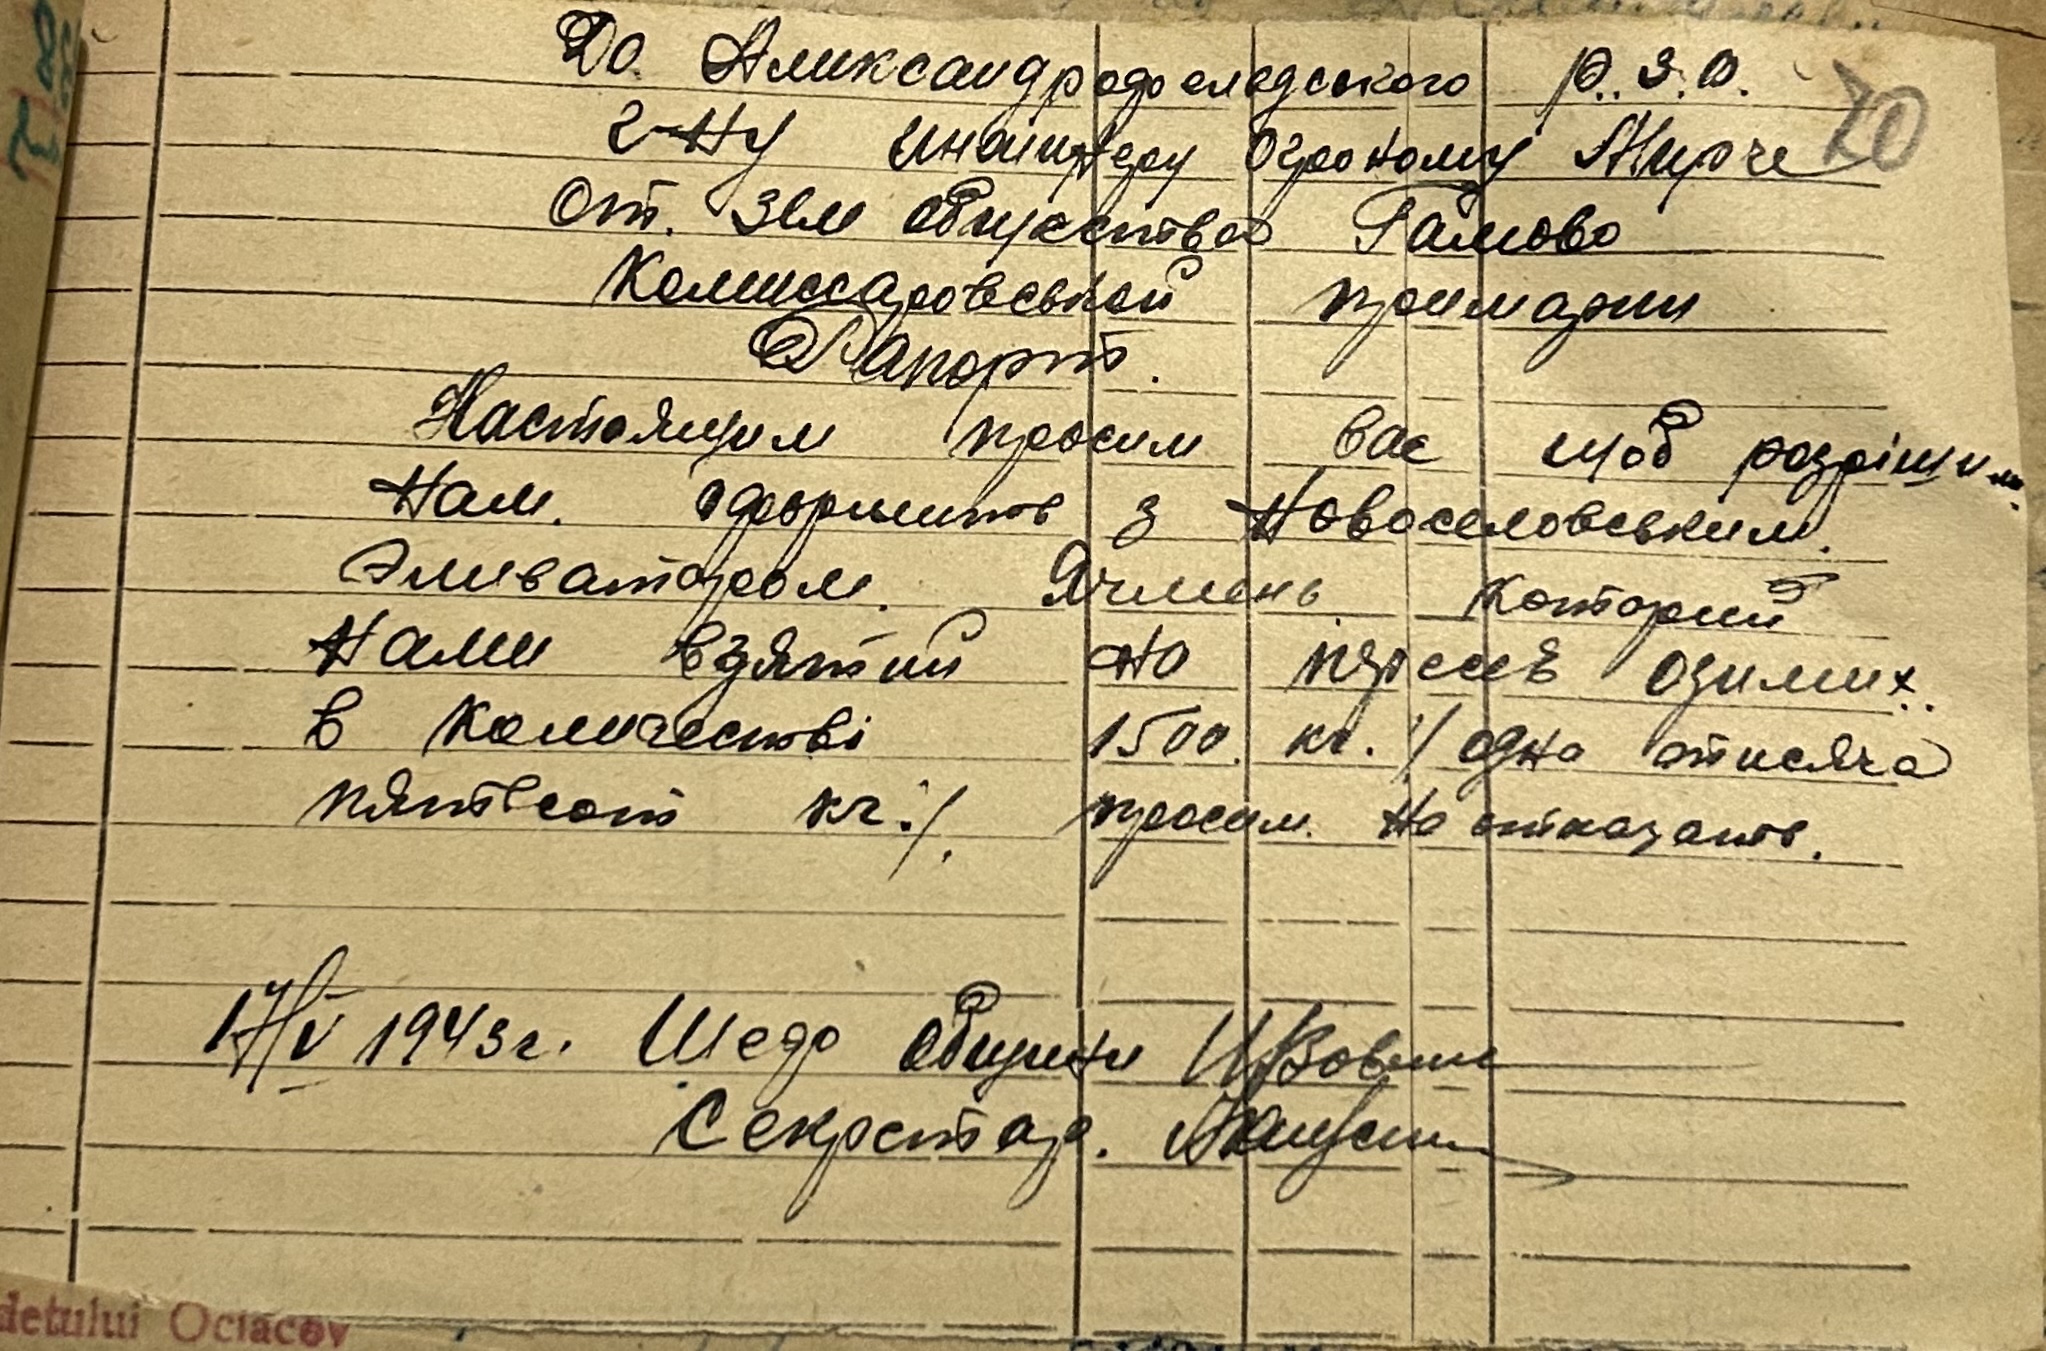 До Александродоеладського Р.З.О.
20
г-ну инжинеру Огроному Мирче
От. Зем общества Гамово
Комиссаровськой примарии
Рапорт.
Настоящим просим вас щоб розрішили
Нам. оформить з Новоселовським.
Эливатором. Ячмень которий
Нами взятий на пересев озимих..
в количестві 1500. кг. /одна тисяча
пятьсот кг./. просим. На отказать.
17/V 1943г. Шефо общини
Секретар.
detului Ociacov